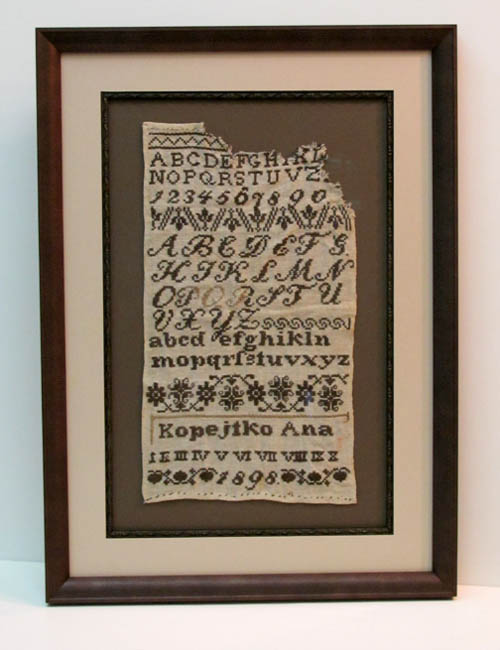 ABCDEFGHIKL
NOPQRSTUVZ
1234567890
ABCDEFG
HIJKLMN
OPQRSTU
VXYZ
abcd efghikln
mopqrſstuvxyz
Kopejtko Ana
I II III IV V VI VII VIII IX X
1898